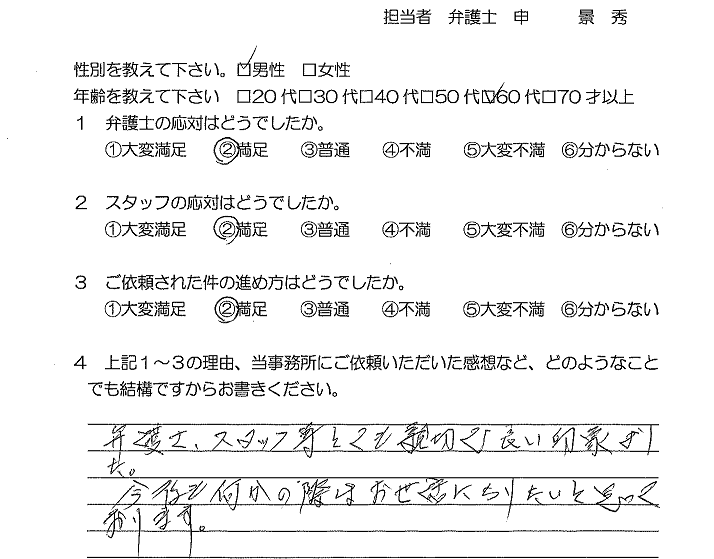 担当者 弁護士 申 景 秀
性別を教えて下さい。☑男性 □女性
年齢を教えて下さい □20代□30代□40代□50代☑60代□70才以上
1 弁護士の応対はどうでしたか。
①大変満足 ②満足 ③普通 ④不満 ⑤大変不満 ⑥分からない
2 スタッフの応対はどうでしたか。
①大変満足 ②満足 ③普通 ④不満 ⑤大変不満 ⑥分からない
3 ご依頼された件の進め方はどうでしたか。
①大変満足 ②満足 ③普通 ④不満 ⑤大変不満 ⑥分からない
4 上記1～3の理由、当事務所にご依頼いただいた感想など、どのようなこと
でも結構ですからお書きください。
弁護士、スタッフ等とても親切で良い印象でし
た。
今後も何かの際はお世話になりたいと思って
おります。